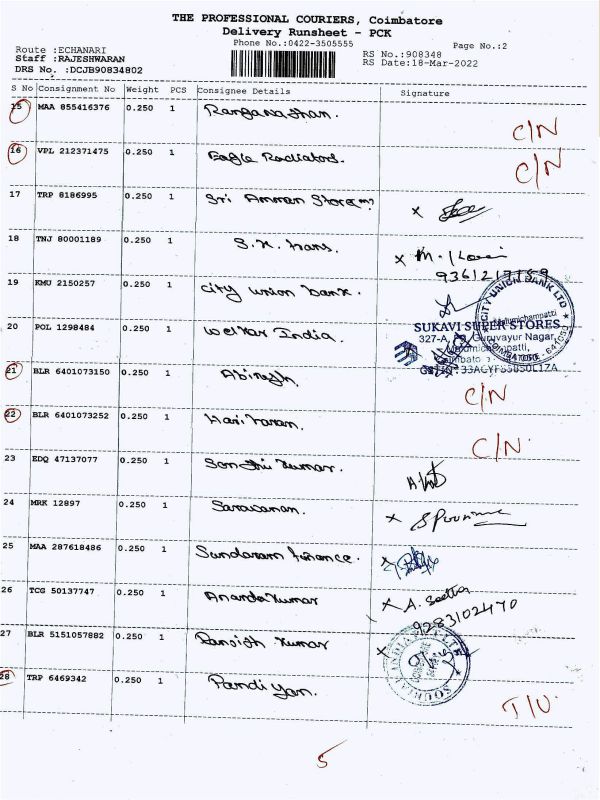 THE PROFESSIONAL COURIERS, Coimbatore
Delivery Runsheet - PCK
Phone No.:0422-3505555
Page No.:2
Route :ECHANARI
Staff :RAJESHWARAN
DRS No. :DCJB90834802
RS No.:908348
RS Date:18-Mar-2022
S No Consignment No Weight PCS Consignee Details Signature
15 MAA 855416376 0.250 1 Ranganathan. C/N
16 VPL 212371475 0.250 1 Eagle Radiators. C/N
17 TRP 8186995 0.250 1 Sri Amman Store x
18 TNJ 80001189 0.250 1 S.K. trans. x M.
19 KMU 2150257 0.250 1 City union bank. CITY UNION BANK LTD
20 POL 1298484 0.250 1 India.
SUKAVI SUPER STORES
Guruvayur Nagar,
21 BLR 6401073150 0.250 1 Abinesh C/N
22 BLR 6401073252 0.250 1 Hari haran. C/N
23 EDQ 47137077 0.250 1 kumar.
24 MRK 12897 0.250 1 Saravanan. x
25 MAA 287618486 0.250 1 Sundaram finance. x
26 TCG 50137747 0.250 1 Ananda kumar x A.
9283102470
27 BLR 5151057882 0.250 1 kumar x
28 TRP 6469342 0.250 1 Pandiyan. T/U
5